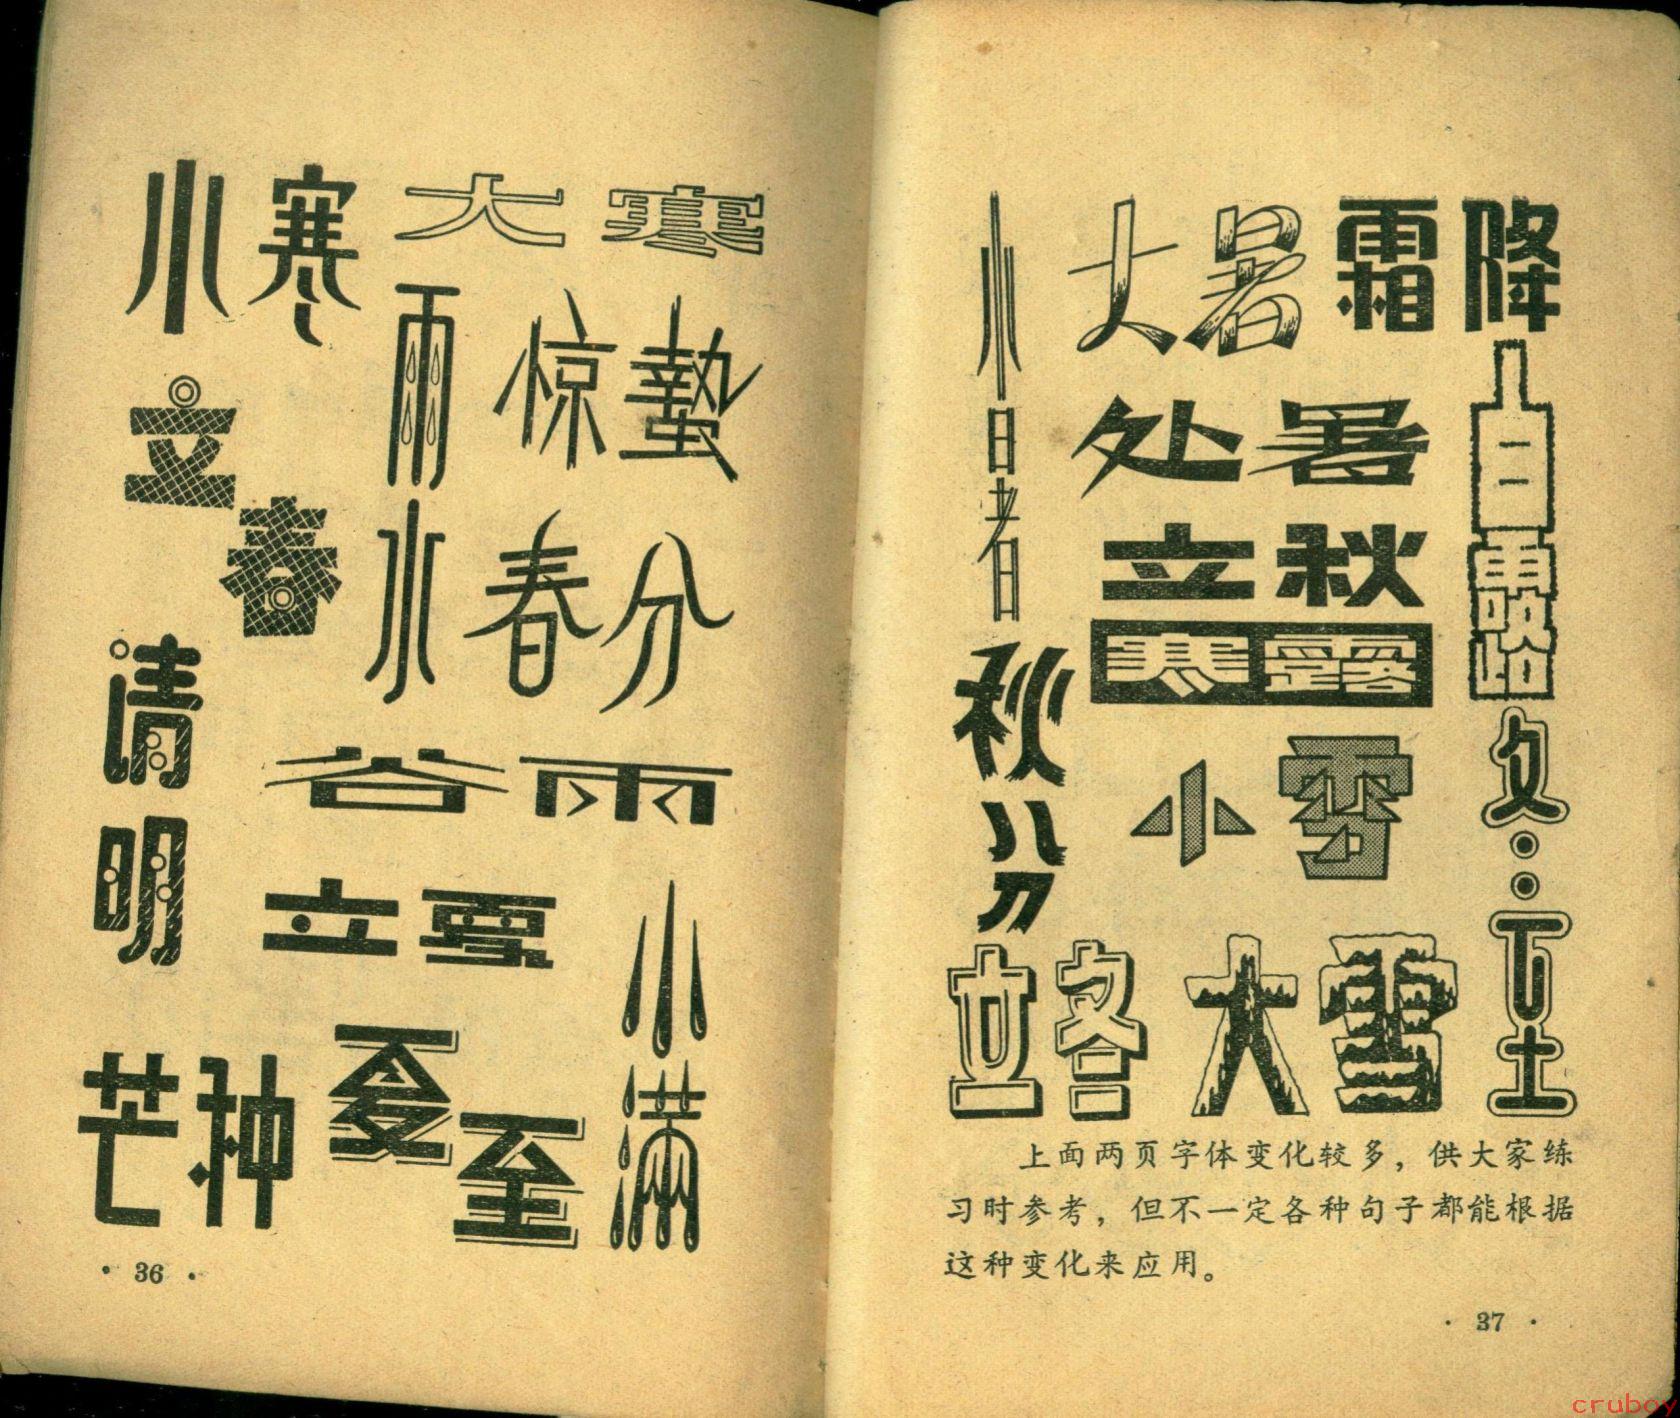 小寒
大寒
立春
雨水
惊蟄
春分
清明
谷雨
立夏
小满
芒种
夏至
· 36 ·
小暑
大暑
霜降
处暑
白露
立秋
寒露
秋分
小雪
冬至
立冬
大雪
上面两页字体变化较多，供大家练
习时参考，但不一定各种句子都能根据
这种变化来应用。
· 37 ·
cruboy